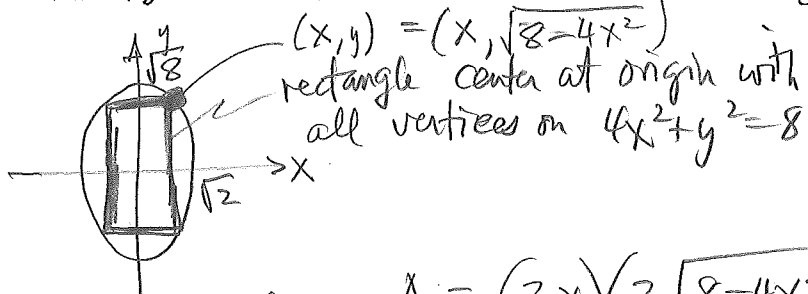 y
√8
(x,y) = (x, √8-4x²)
rectangle center at origin with
all vertices on 4x²+y²=8
x
√2
A = (2x)(2√8-4x²